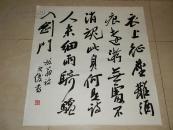 衣上征塵雜酒
痕遠遊無處不
消魂此身合是詩
人未細雨騎驢
入劍門